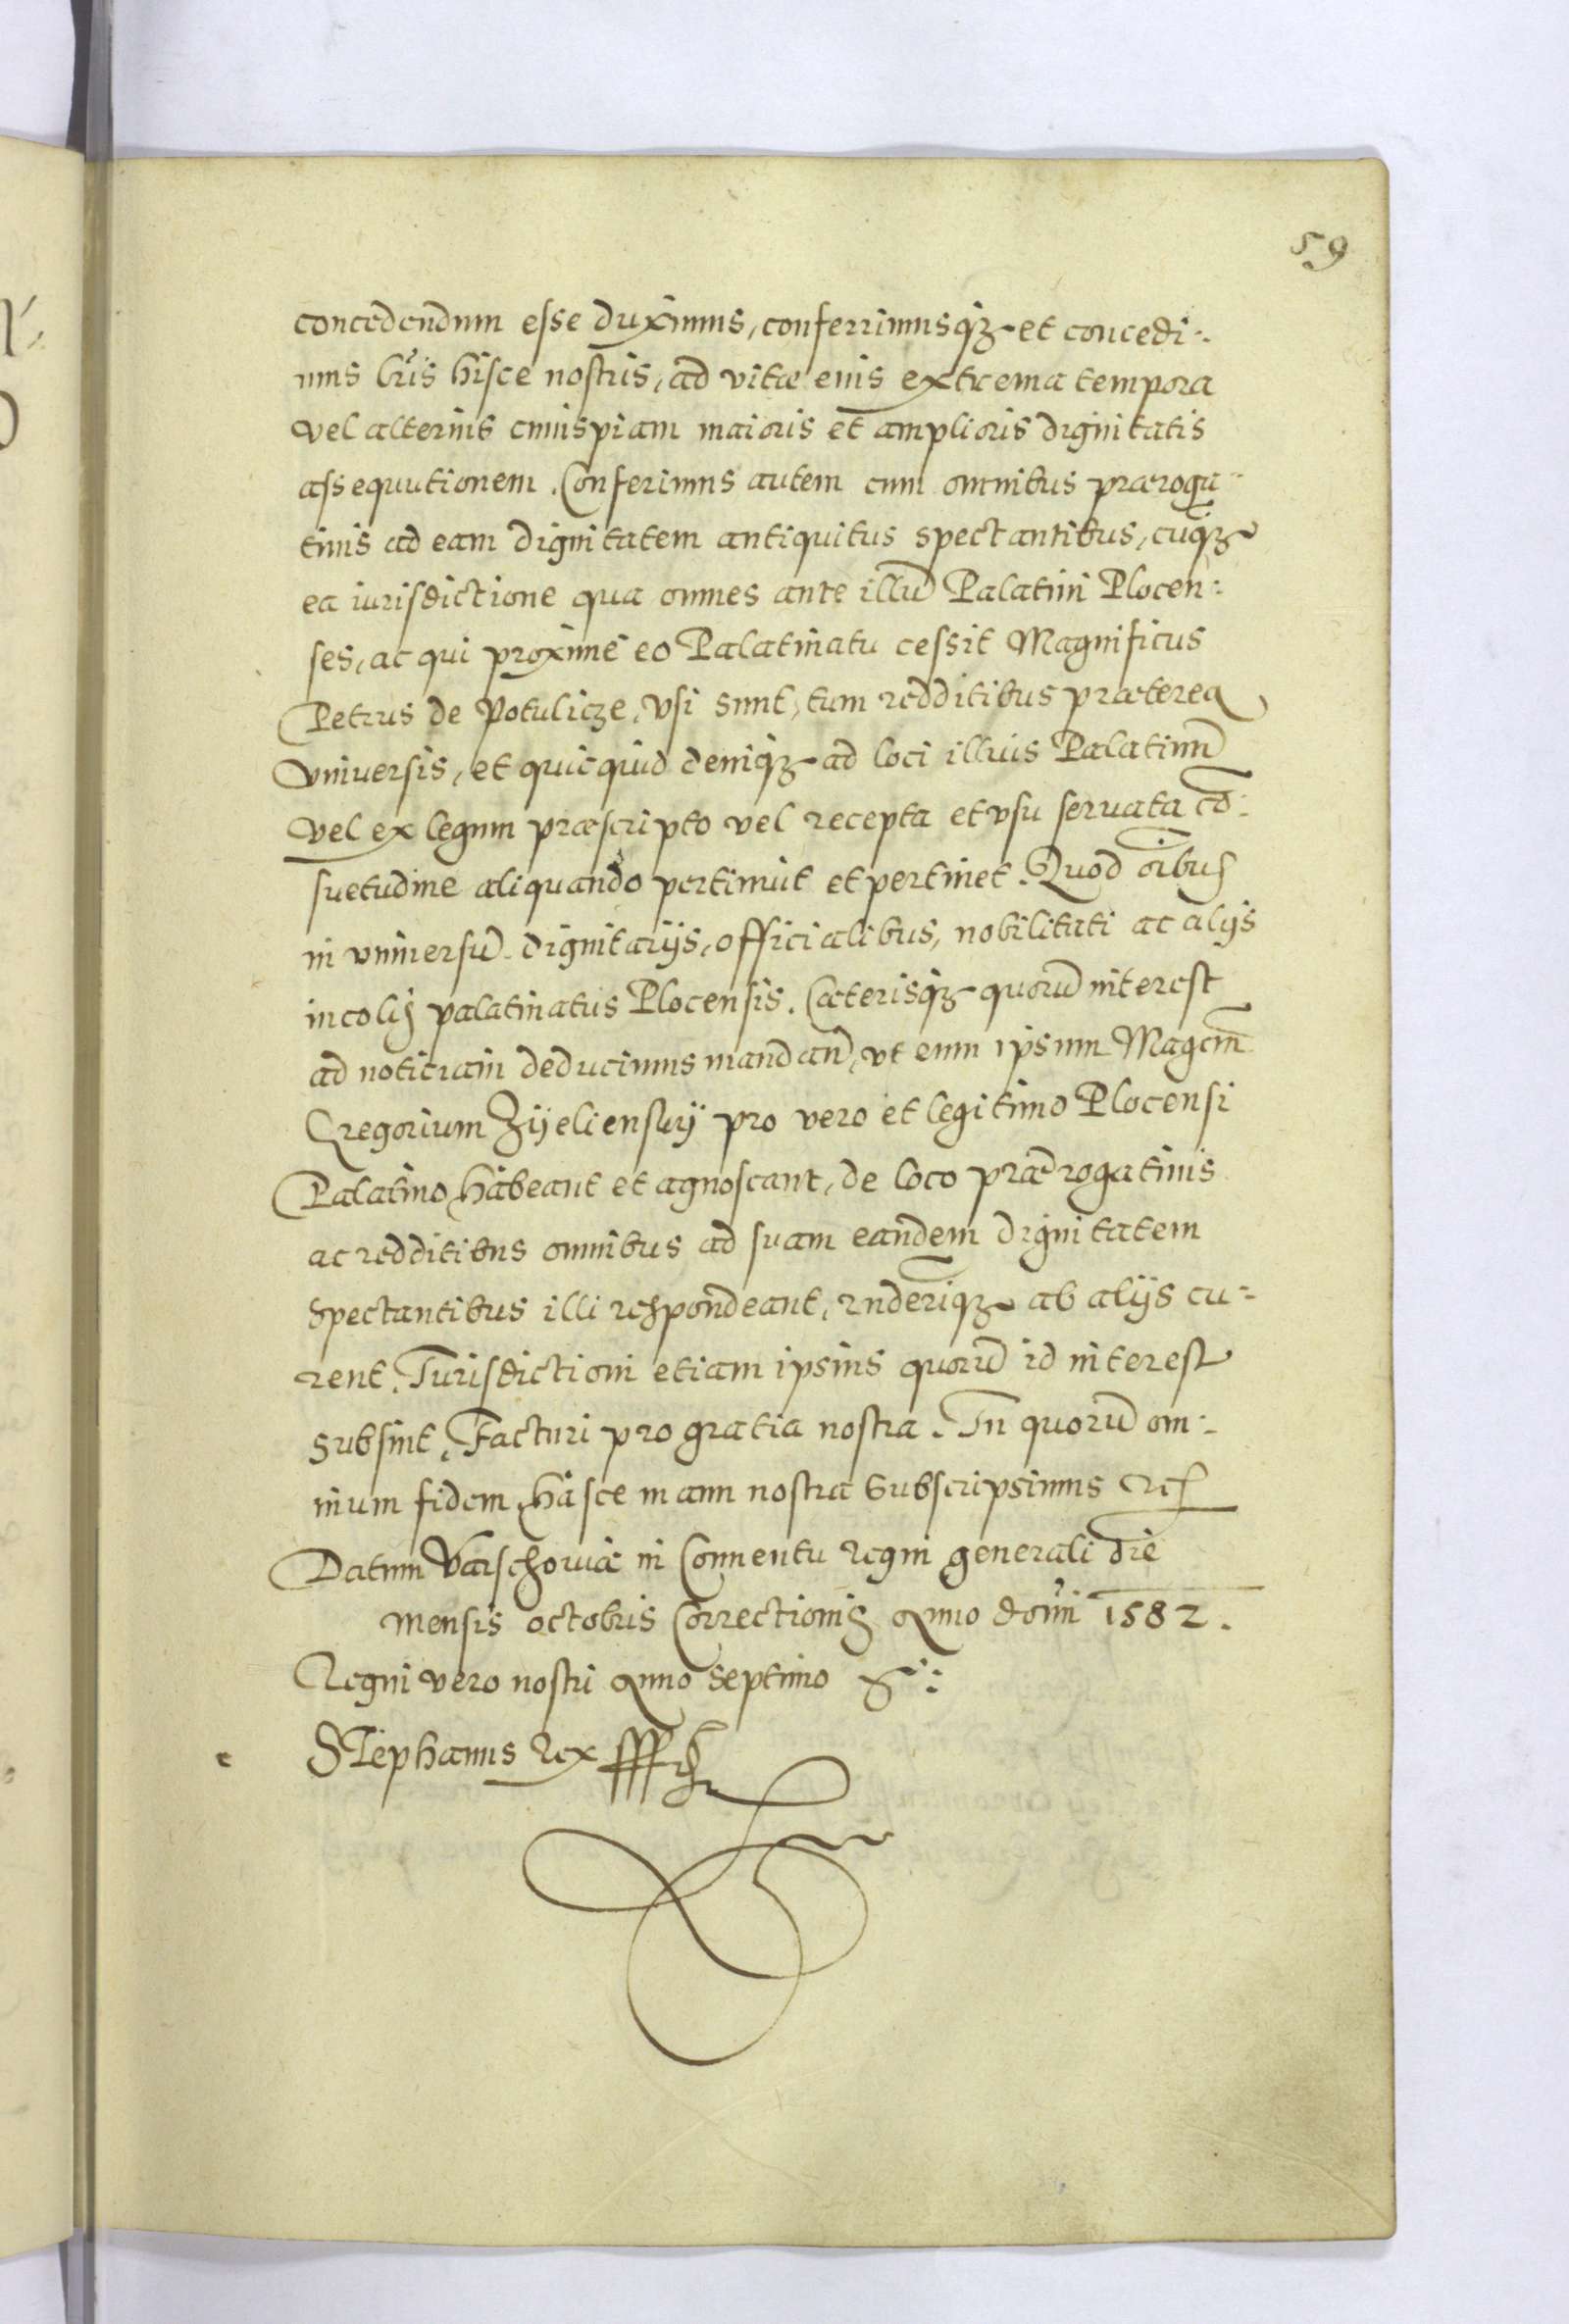 59
concedendum esse duximus, conferrimusq3 et concedi:
mus lr̃is hisce nostris, ad vitæ eius extrema tempora
vel alterius cuiuspiam maioris et amplioris dignitatis
assequutionem. Conferimus autem cum omnibus præroga
tiuis ad eam dignitatem antiquitus spectantibus, cuq3
ea iurisdictione qua omnes ante illũ Palatini Plocen:
ses, ac qui proxime eo Palatinatu cessit Magnificus
Petrus de Potulicze, vsi sunt, tum redditibus præterea
vniuersis, et quicquid deniq3 ad loci illius Palatinũ
vel ex legum præscripto vel recepta et vsu seruata cõ:
suetudine aliquando pertinuit et pertinet. Quod oĩbus
in vniuersũ dignitarijs, officialibus, nobilitati ac alijs
incolis palatinatus Plocensis. Cæterisq3 quorũ interest
ad notitiam deducimus mandan̄, vt eum ipsum Magcm̃
Gregorium Zÿelienskÿ pro vero et legitimo Plocensi
Palatino habeant et agnoscant, de loco prærogatiuis
ac redditibus omnibus ad suam eandem dignitatem
spectantibus illi respondeant, rñderiq3 ab alijs cu:
rent. Iurisdictioni etiam ipsius quorũ id interest
subsint, Facturi pro gratia nostra. In quorũ om:
nium fidem hasce manu nostra subscripsimus etc
Datum Varschouiæ in Conuentu Regni generali die
mensis octobris Correctionis Anno domĩ 1582.
Regni vero nostri Anno septimo
Stephanus Rex